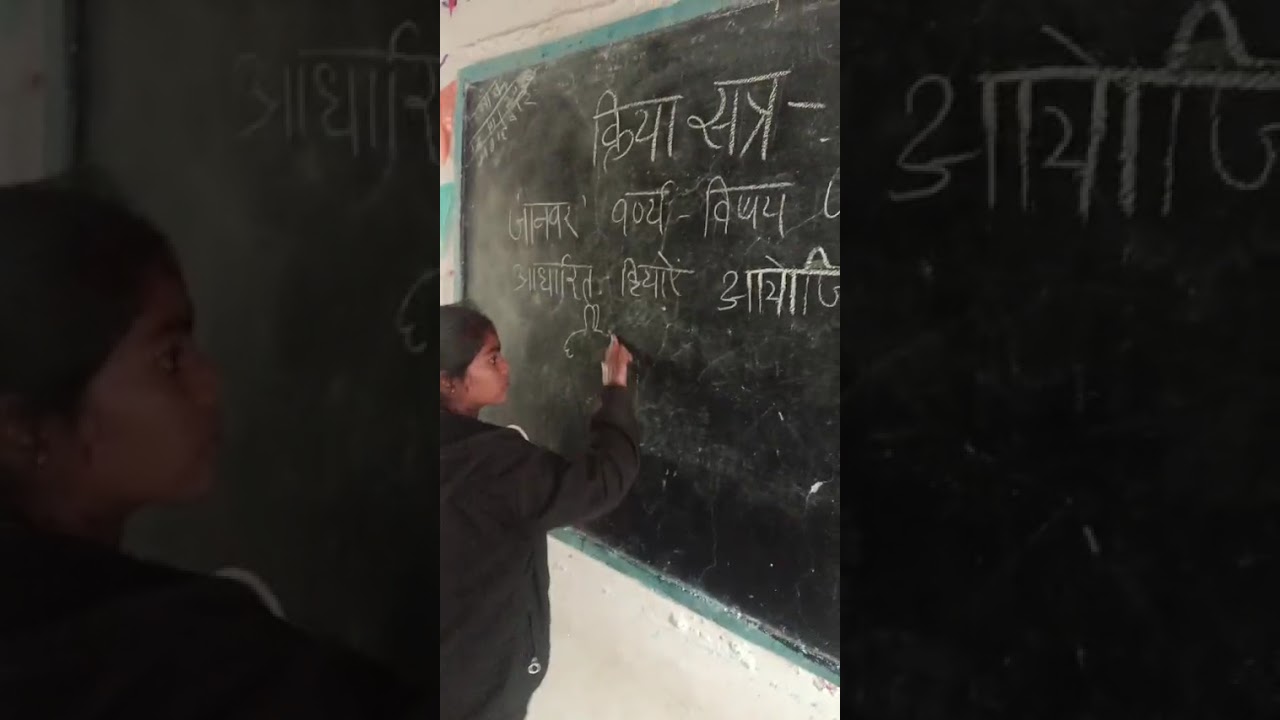 क्रिया सत्र -
'जानवर' वर्ण्य - विषय
आधारित - क्रियाएं आयोजि